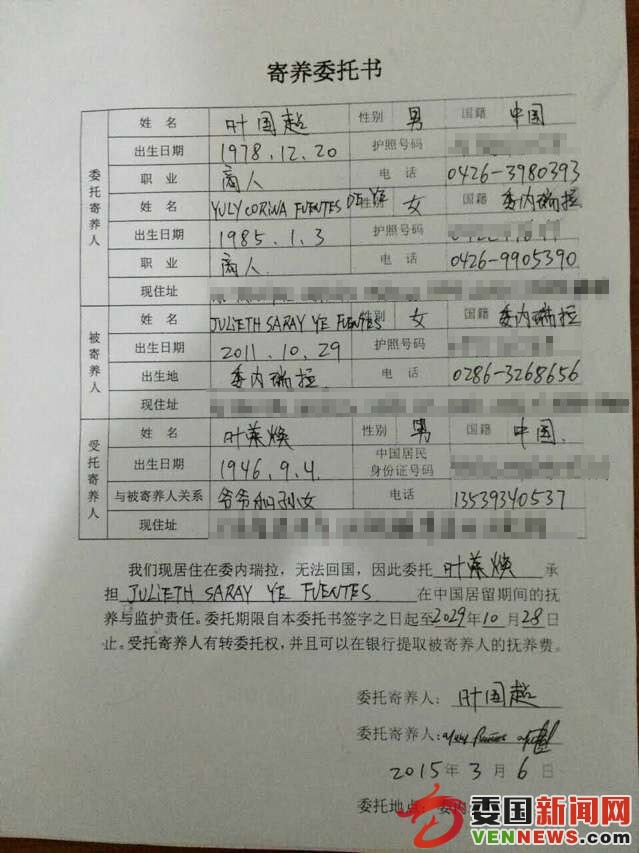 寄养委托书
委托寄养人
姓 名 叶国超 性别 男 国籍 中国
出生日期 1978.12.20 护照号码
职 业 商人 电 话 0426-3980393
姓 名 YULY CORINA FUENTES DE YE 性别 女 国籍 委内瑞拉
出生日期 1985.1.3 护照号码
职 业 商人. 电 话 0426-9905390
现住址
被寄养人
姓 名 JULIETH SARAY YE FUENTES 性别 女 国籍 委内瑞拉
出生日期 2011.10.29 护照号码
出生地 委内瑞拉 电 话 0286-3268656
现住址
受托寄养人
姓 名 叶荣焕 性别 男 国籍 中国.
出生日期 1946.9.4. 中国居民身份证号码
与被寄养人关系 爷爷和孙女 电话 13539340537
现住址
我们现居住在委内瑞拉，无法回国，因此委托 叶荣焕 承
担 JULIETH SARAY YE FUENTES 在中国居留期间的抚
养与监护责任。委托期限自本委托书签字之日起至2029年10月28日
止。受托寄养人有转委托权，并且可以在银行提取被寄养人的抚养费。
委托寄养人：叶国超
委托寄养人：
2015年3月6日
委托地点：委内
委国新闻网
VENNEWS.COM